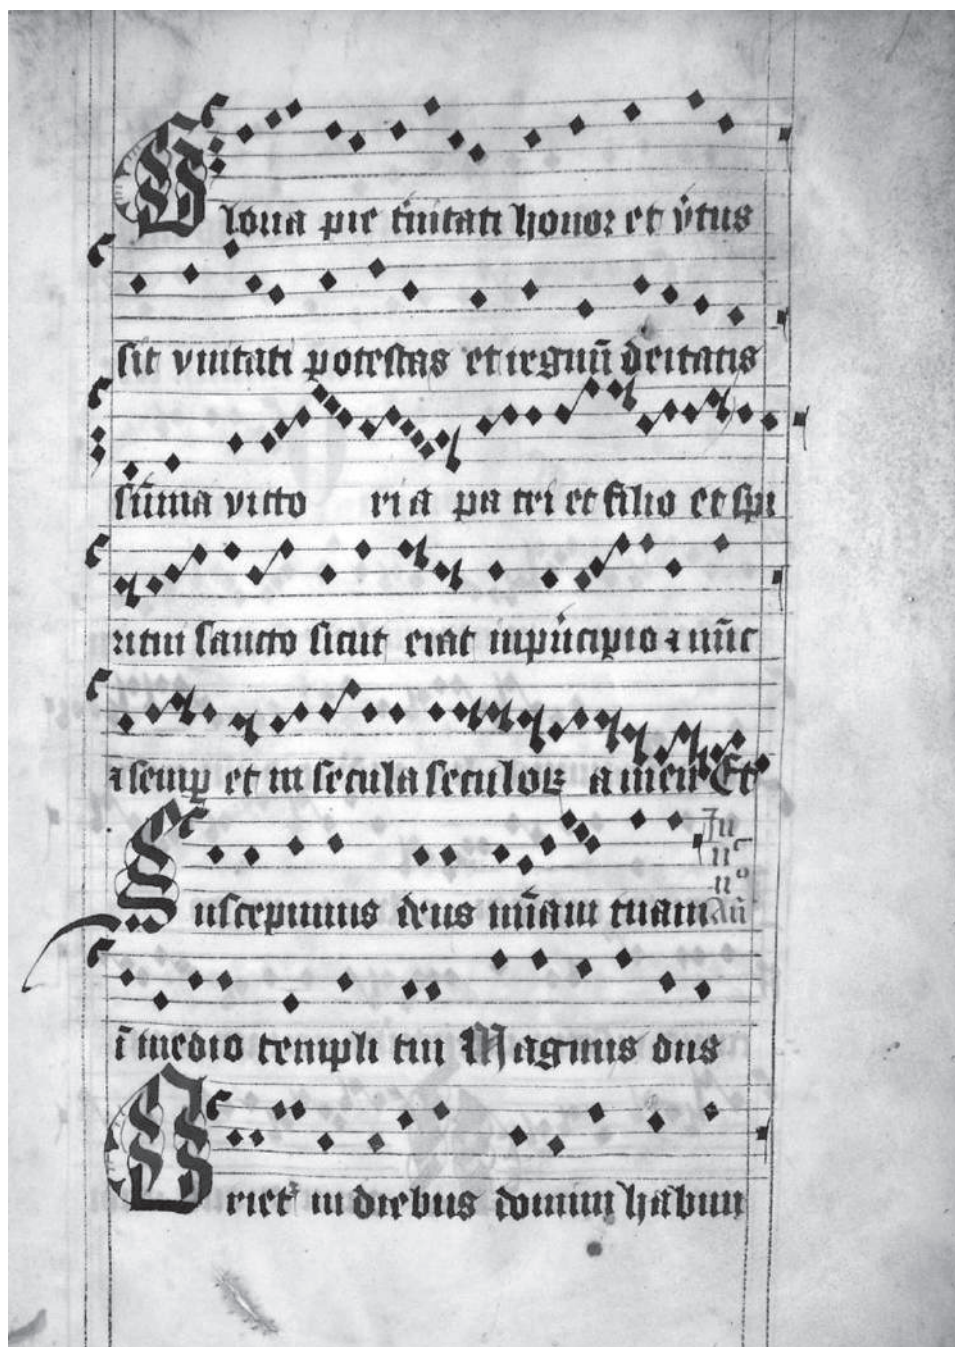 Gloria pie t̾nitati honor et v̾tus
sit vnitati potestas et regnũ deitatis
sũma victo ria pa tri et filio et spi
ritui sancto sicut erat inp̾ncipio ⁊ nũc
⁊ semꝑ et in secula seculoꝝ amen Et
Suscepimus deus mĩam tuam
ĩ medio templi tui Magnus dñs
Oriet᷑ in diebus domini habun